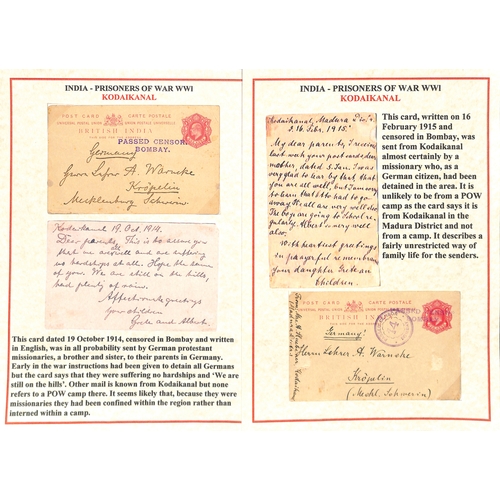 INDIA - PRISONERS OF WAR WWI
KODAIKANAL
POST CARD
BRITISH INDIA
PASSED CENSOR
BOMBAY.
Germany
Herrn Lehrer A. Warncke
Kröpelin
Mecklenburg Schwerin
Kodaikanal 19. Oct. 1914.
Dear parents, This is to assure you
that we are well and are suffering
no hardships at all. Hope the same
of you. We are still on the hills,
had plenty of
Affectionate greetings
Your children
Grete and Albert.
This card dated 19 October 1914, censored in Bombay and written
in English, was in all probability sent by German protestant
missionaries, a brother and sister, to their parents in Germany.
Early in the war instructions had been given to detain all Germans
but the card says that they were suffering no hardships and 'We are
still on the hills'. Other mail is known from Kodaikanal but none
refers to a POW camp there. It seems likely that, because they were
missionaries they had been confined within the region rather than
interned within a camp.
INDIA - PRISONERS OF WAR WWI
KODAIKANAL
Kodaikanal, Madura Dist.
16. Febr. 1915.
My dear parents,
Last week your post card
mother, dated
very glad to hear by that that
you are all well, but I am sorry
to learn that had to go
away. We all are very well also.
The boys are going to School re-
gularly. Albert is very well
also.
With heartiest greetings
in prayerful remembrance
your daughter Grete and
Children.
This card, written on 16
February 1915 and
censored in Bombay, was
sent from Kodaikanal
almost certainly by a
missionary who, as a
German citizen, had
been detained in the
area. It is
unlikely to be from a POW
camp as the card says it is
from Kodaikanal in the
Madura District and not
from a camp. It describes a
fairly unrestricted way of
family life for the senders.
POST CARD
BRITISH INDIA
Germany.
Herrn Lehrer A. Warncke
Kröpelin
(Meckl. Schwerin)